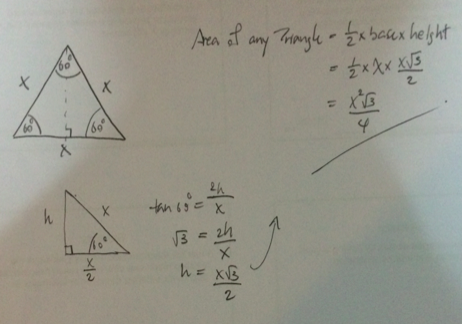 60°
x x
60° 60°
x
Area of any Triangle = 1/2 x base x height
= 1/2 x x x x√3/2
= x²√3/4
h x
60°
x/2
tan 60° = 2h/x
√3 = 2h/x
h = x√3/2